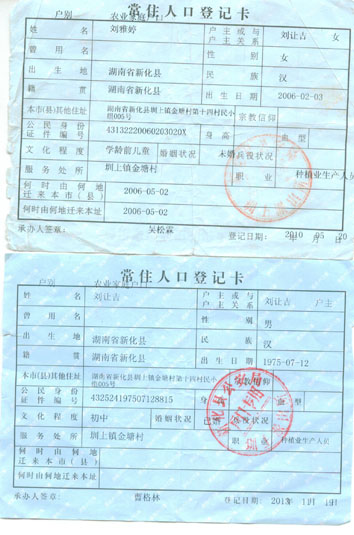 常住人口登记卡
户别 农业家庭户口
姓名 刘雅婷 户主或与户主关系 刘让吉 女
曾用名 性别 女
出生地 湖南省新化县 民族 汉
籍贯 湖南省新化县 出生日期 2006-02-03
本市(县)其他住址 湖南省新化县圳上镇金塘村第十四村民小组005号 宗教信仰
公民身份证件编号 43132220060203020X 身高 血型
文化程度 学龄前儿童 婚姻状况 未婚 兵役状况
服务处所 圳上镇金塘村 职业 种植业生产人员
何时由何地迁来本市(县) 2006-05-02
何时由何地迁来本址 2006-05-02
承办人签章: 吴松霖 登记日期: 2010 年 05 月 20 日
常住人口登记卡
户别 农业家庭户
姓名 刘让吉 户主或与户主关系 户主
曾用名 性别 男
出生地 湖南省新化县 民族 汉
籍贯 湖南省新化县 出生日期 1975-07-12
本市(县)其他住址 湖南省新化县圳上镇金塘村第十四村民小组005号 宗教信仰
公民身份证件编号 432524197507128815 身高 血型
文化程度 初中 婚姻状况 已婚 兵役状况
服务处所 圳上镇金塘村 职业 种植业生产人员
何时由何地迁来本市(县)
何时由何地迁来本址
承办人签章: 曾格林 登记日期: 2013 年 11 月 19 日